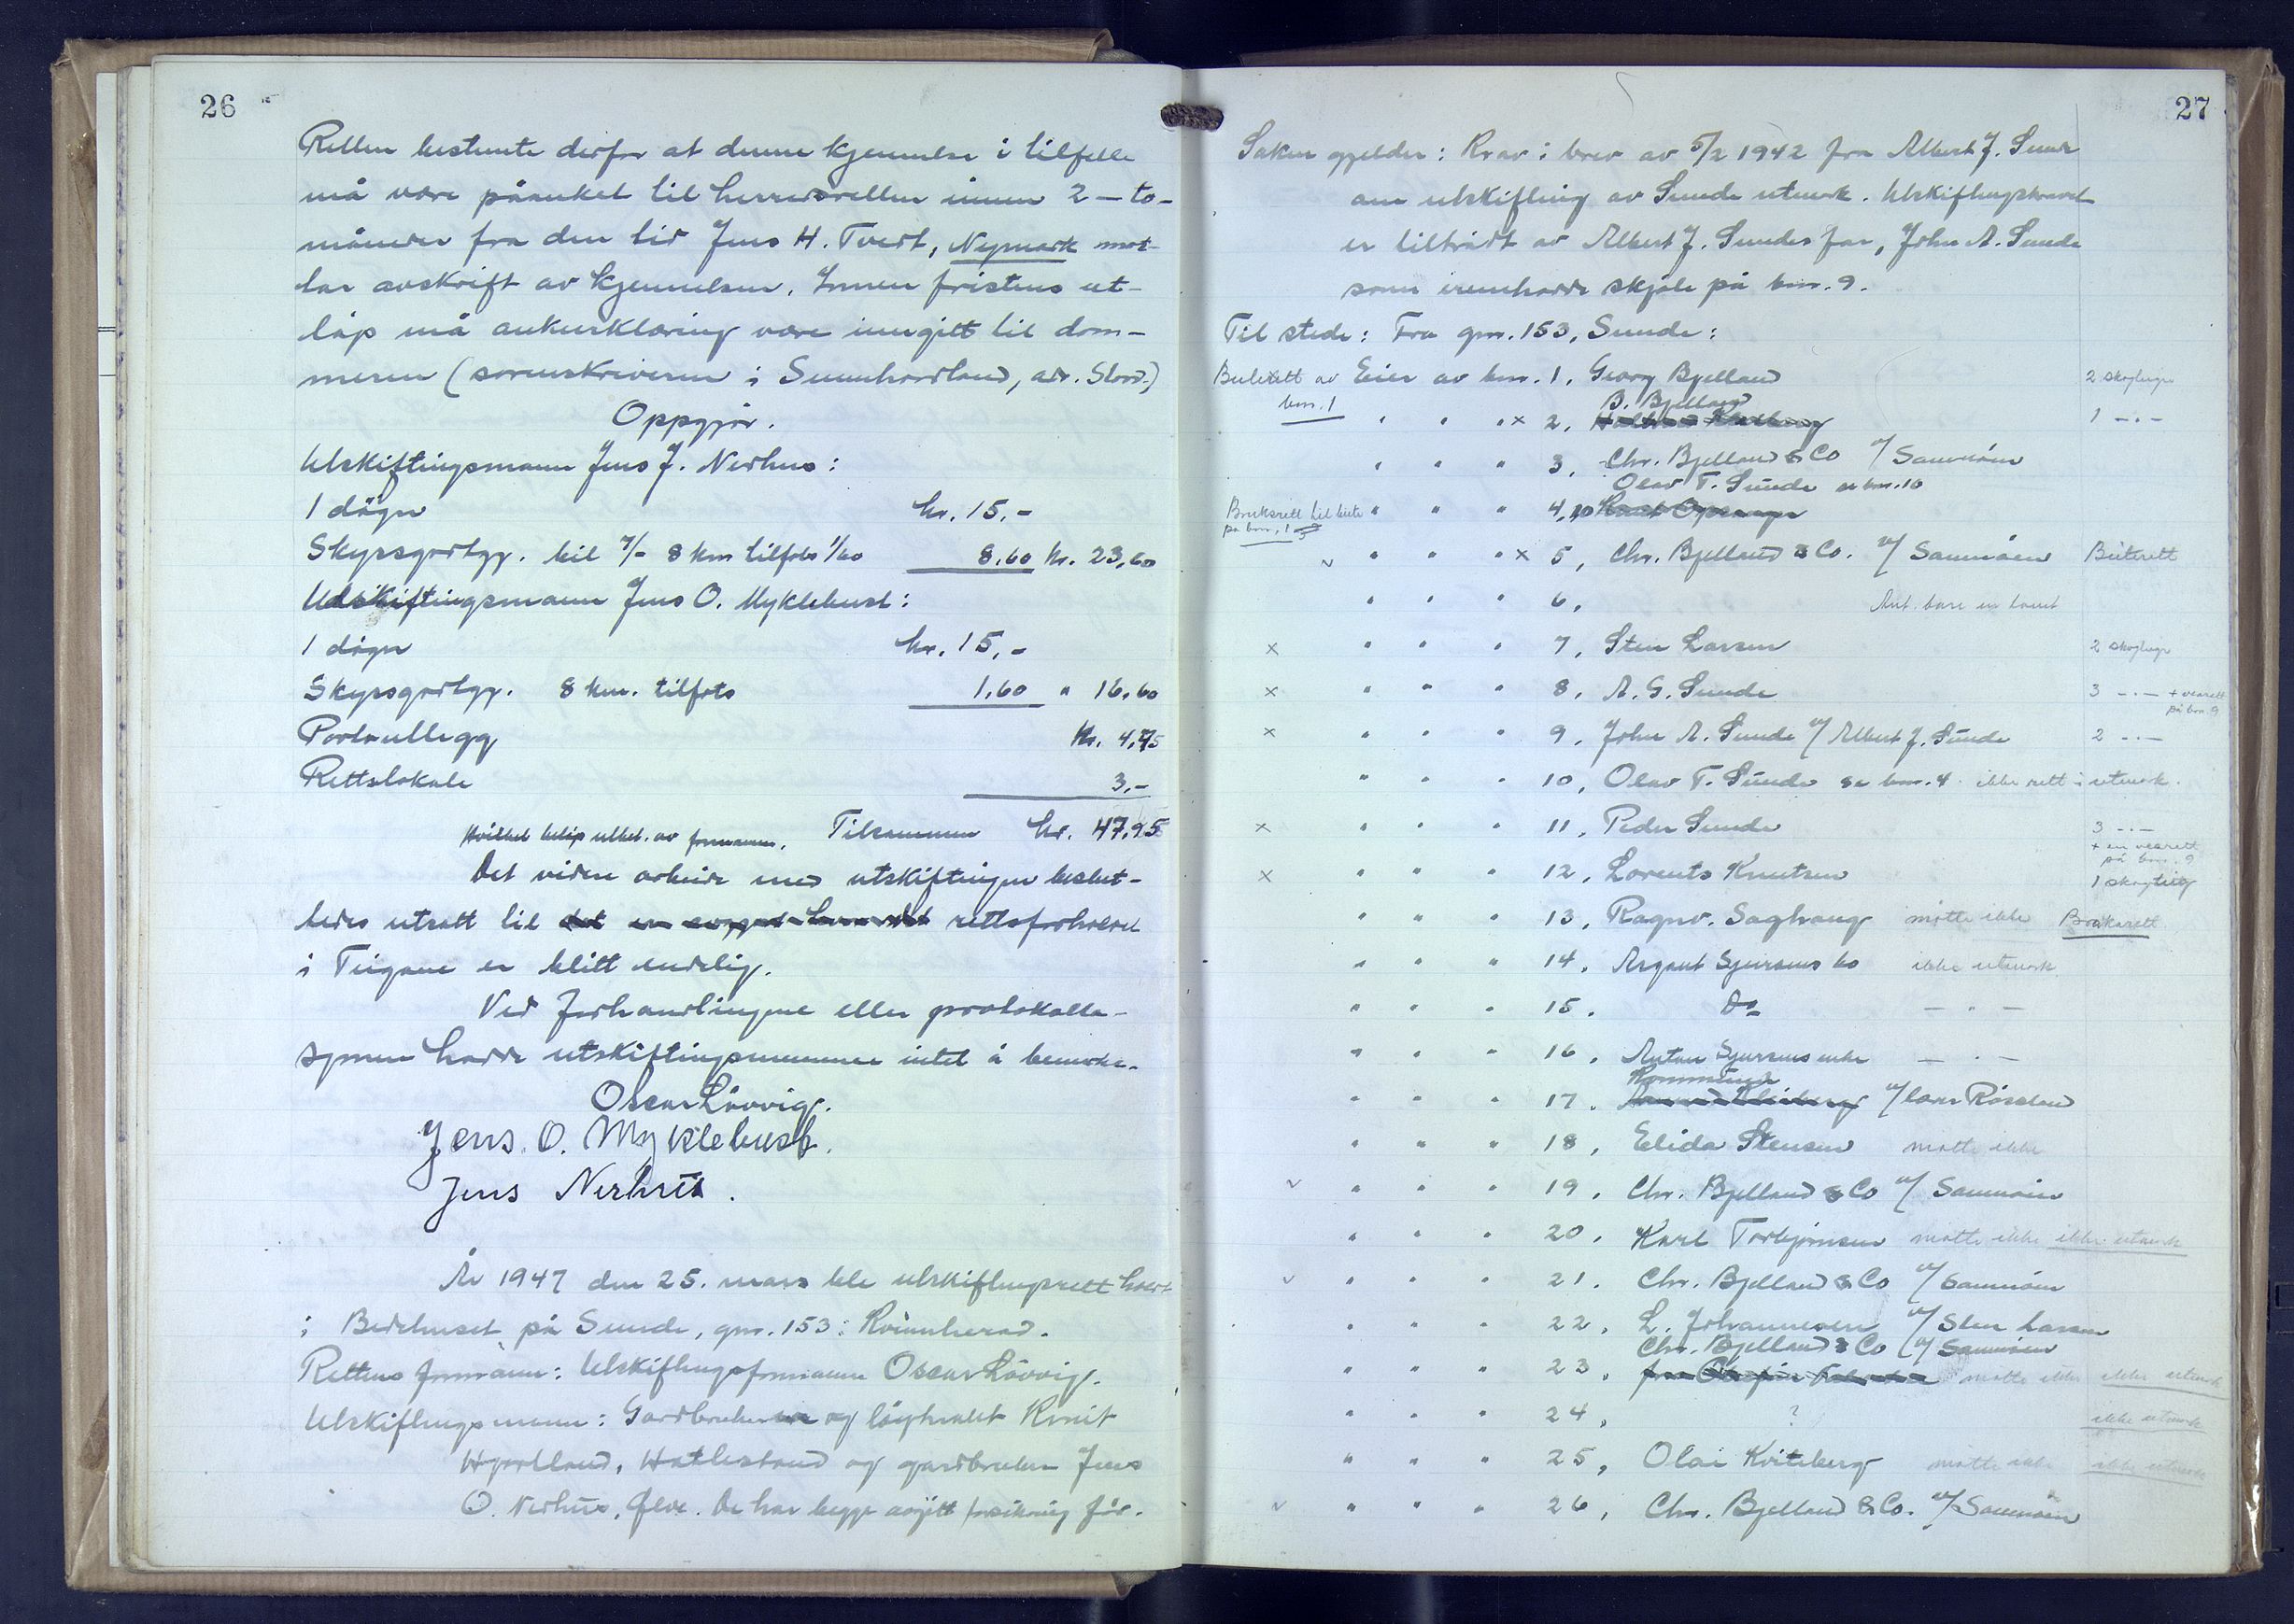 26
Retten bestemte derfor at denne kjennelse i tilfelle
må være påanket til herredsretten innen 2 - to -
måneder fra den tid Jens H. Tvedt, Nymark mot-
tar avskrift av kjennelsen. Innen fristens ut-
løp må ankeerklæring være inngitt til dom-
meren (sorenskriveren i Sunnhordland, adr. Stord.)
Oppgjør.
Utskiftingsmann Jens J. Nerhus:
1 døgn kr. 15,-
Skyssgodtgj. bil 7/- 8 km tilfots 1/60 8,60 kr. 23,60
Utskiftingsmann Jens O. Myklebust:
1 døgn kr. 15,-
Skyssgodtgj. 8 km. tilfots 1,60 " 16,60
Portoutlegg kr. 4,75
Rettslokale 3,-
Hvilket beløp utbet. av formannen. Tilsammen kr. 47,95
Det videre arbeide med utskiftingen beslut-
tedes utsatt til rettsforholdet
i Teigane er blitt endelig.
Ved forhandlingene eller protokolla-
sjonen hadde utskiftingsmennene intet å bemerke.
Oscar Løvvig.
Jens. O. Myklebust.
Jens Nerhus.
År 1947 den 25. mars ble utskiftingsrett holdt
i Bedehuset på Sunde, gnr. 153 i Kvinnherad.
Rettens formann: Utskiftingsformann Oscar Løvvig.
Utskiftingsmenn: Gardbruker og løytnant Knut
Hjortland, Hatlestrand og gardbruker Jens
O. Nerhus, Ølve. De har begge avgitt forsikring før.
27
Saken gjelder: Krav i brev av 5/2 1942 fra Albert J. Sunde
om utskifting av Sunde utmark. Utskiftingskravet
er tiltrådt av Albert J. Sundes far, John A. Sunde
som innehadde skjøte på bnr. 9.
Til stede: Fra gnr. 153, Sunde:
Beiterett av Eier av bnr. 1, Georg Bjelland 2 skogteiger
bnr. 1 B. Bjelland
" " " x 2, 1 - " -
" " " 3, Chr. Bjelland & Co v/ Samnøen
Olav T. Sunde se bnr. 10
Bruksrett til beite " " " 4,10
på bnr. 1
v " " " x 5, Chr. Bjelland & Co. v/ Samnøen Beiterett
" " " 6, Ant. bare en tomt
x " " " 7, Sten Larsen 2 skogteiger
x " " " 8, A. G. Sunde 3 - " - + vearett
på bnr. 9
x " " " 9, John A. Sunde v/ Albert J. Sunde 2 - " -
" " " 10, Olav T. Sunde se bnr. 4. ikke rett i utmark.
x " " " 11, Peder Sunde 3 - " -
+ en vearett
på bnr. 9
x " " " 12, Lorents Knutsen 1 skogteig
" " " 13, Ragnv. Saghaug møtte ikke Bruksrett
" " " 14, Sjursens bo ikke utmark
" " " 15. Do - " -
" " " 16, Anton Sjursens enke - " -
Kommunen
" " " 17. v/ Lars Røssland
" " " 18, Elida Stensen møtte ikke
v " " " 19, Chr. Bjelland & Co v/ Samnøen
" " " 20, Karl Torbjørnsen møtte ikke ikke utmark
v " " " 21. Chr. Bjelland & Co v/ Samnøen
" " " 22, L. Johannesen v/ Sten Larsen
Chr. Bjelland & Co v/ Samnøen
" " " 23, møtte ikke ikke utmark
" " " 24, ? ikke utmark
" " " 25, Olai Kviteberg møtte ikke ikke utmark
v " " " 26, Chr. Bjelland & Co. v/ Samnøen